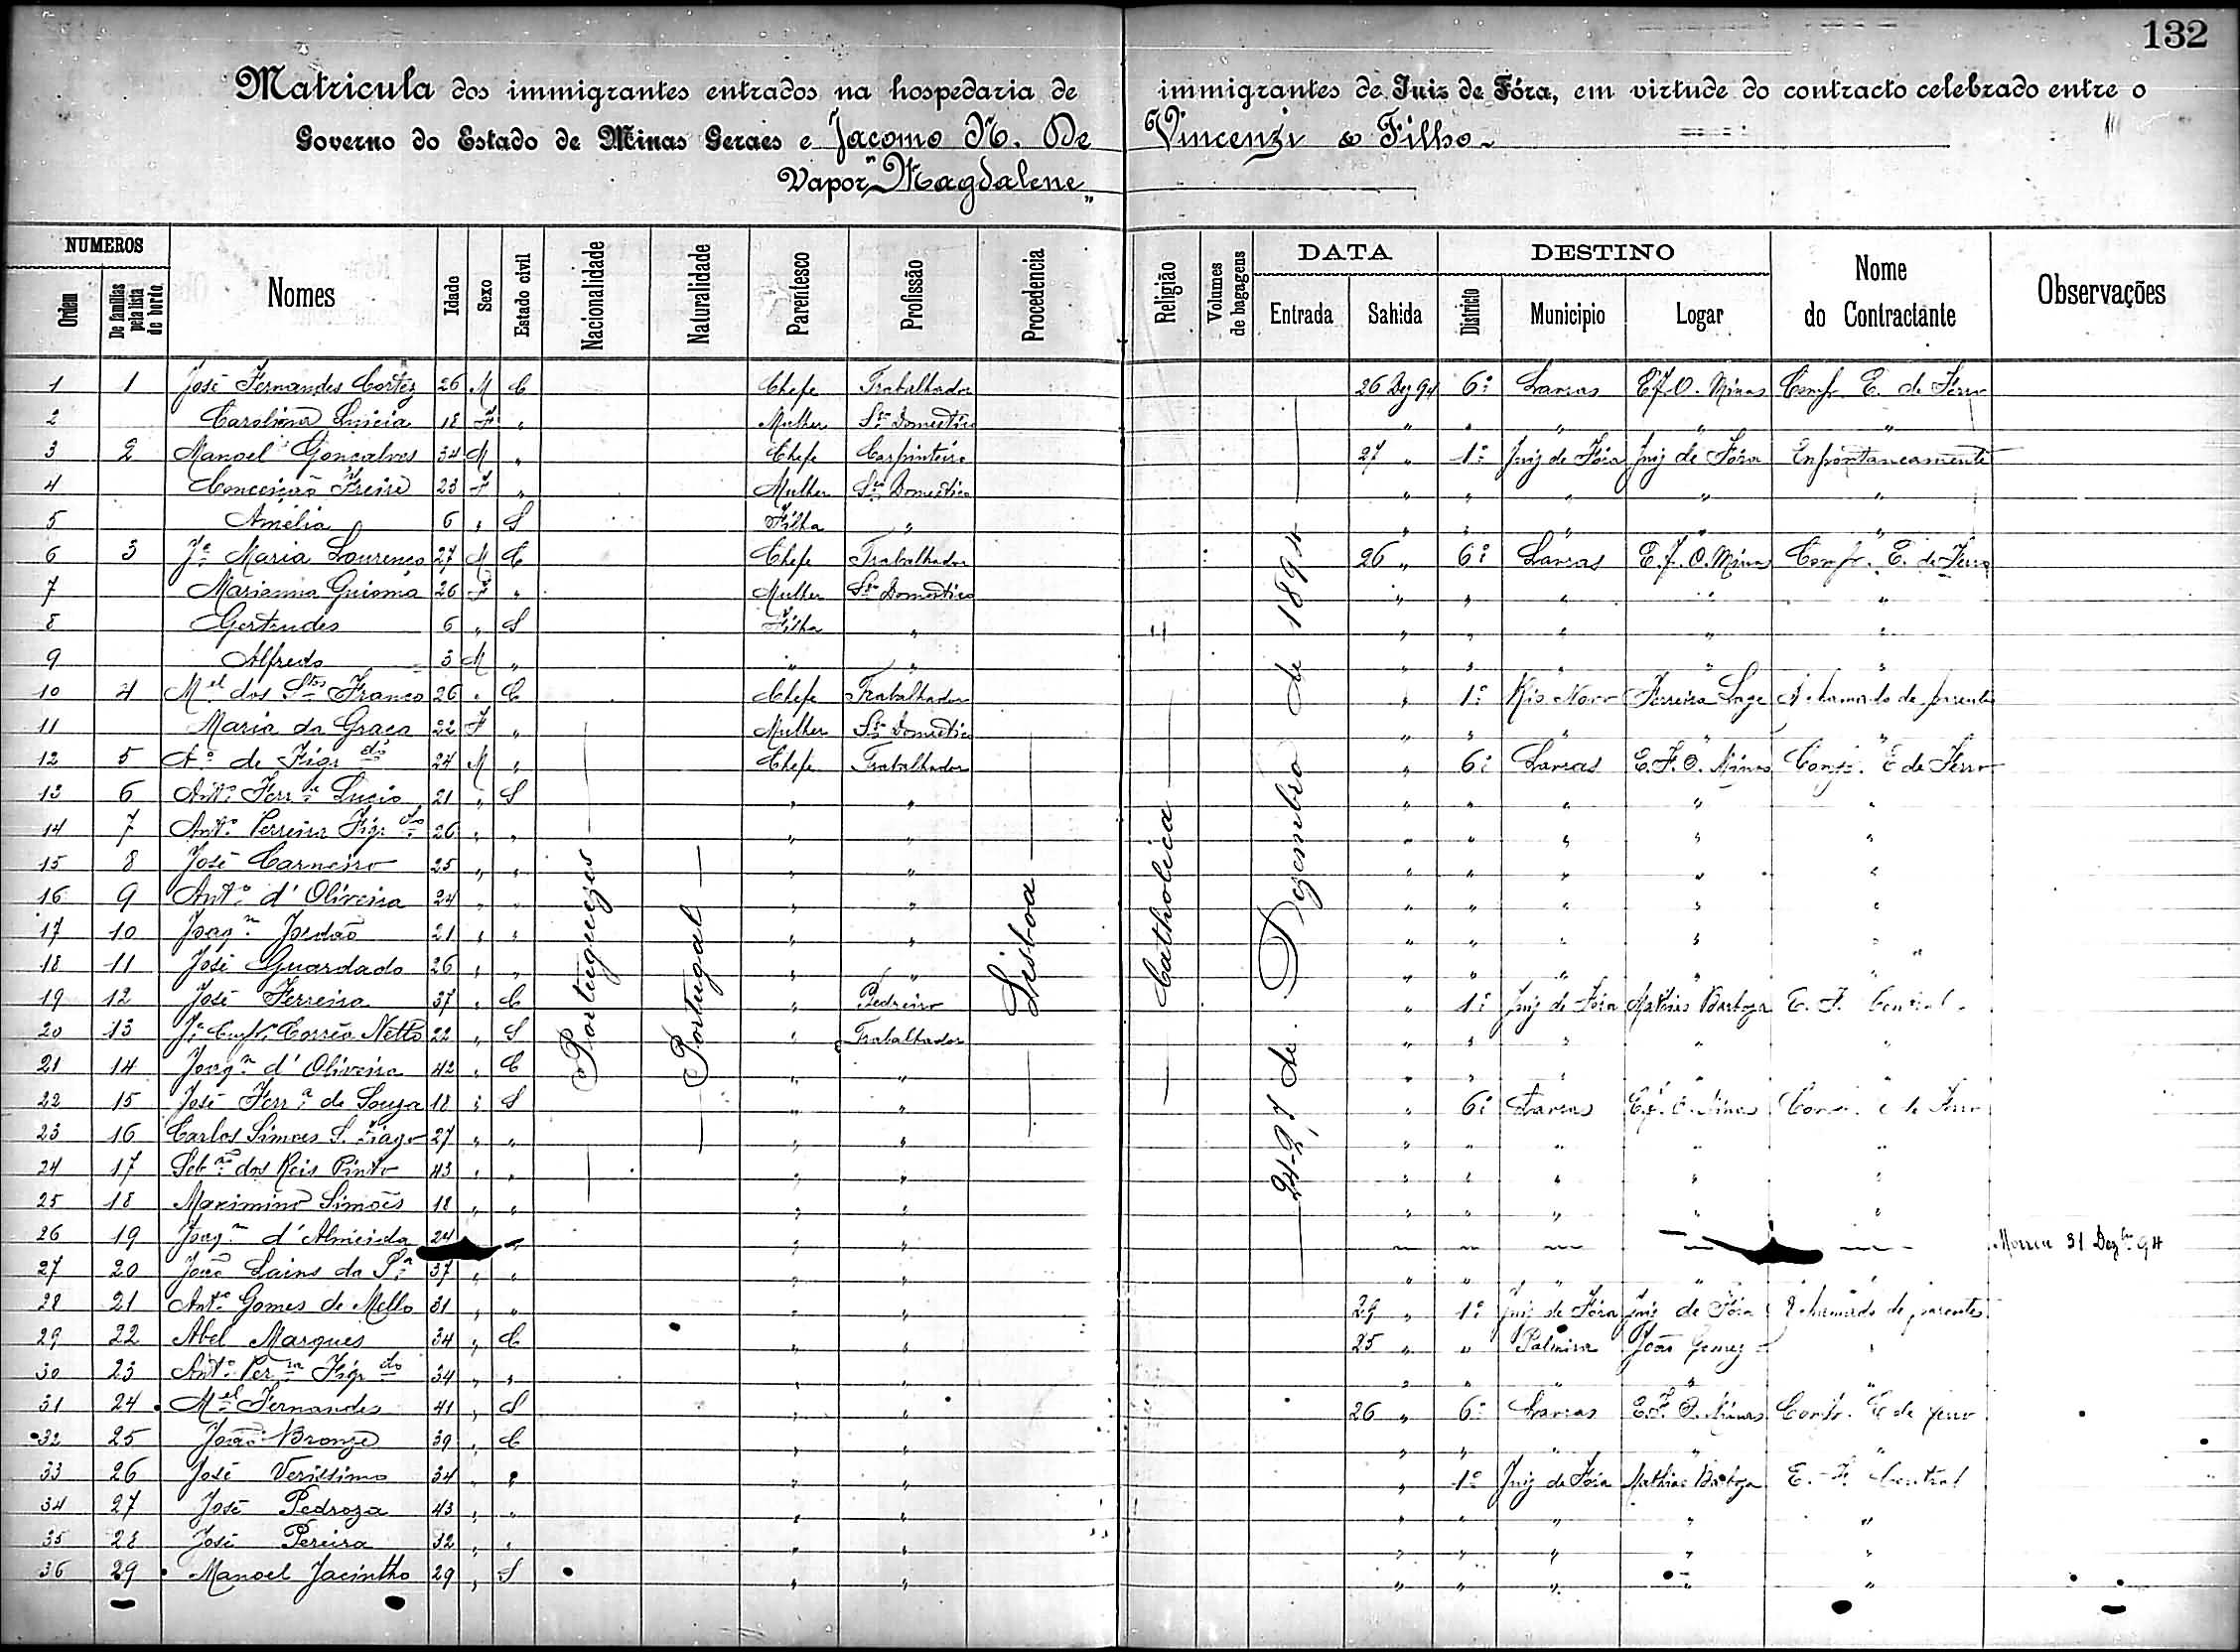 132
Matricula dos immigrantes entrados na hospedaria de immigrantes de Juiz de Fóra, em virtude do contracto celebrado entre o
Governo do Estado de Minas Geraes e Jacomo N. De Vincenzi & Filho
Vapor "Magdalene"
NUMEROS DATA DESTINO
Ordem De familias pela lista de bordo. Nomes Idade Sexo Estado civil Nacionalidade Naturalidade Parentesco Profissão Procedencia Religião Volumes de bagagens Entrada Sahida Districto Municipio Logar Nome do Contractante Observações
Portuguezes
Portugal
Lisboa
Catholica
de Dezembro de 1894
1 1 José Fernandes Cortez 26 M C Chefe Trabalhador 26 Dez 94 6º Lavras E.F.O. Minas E. de Ferro
2 Carolina 18 F " Mulher Sço Domestico " " " " "
3 2 Manoel Gonçalves 34 M " Chefe Carpinteiro 27 " 1º Juiz de Fóra Juiz de Fóra
4 Conceição Freire 23 F " Mulher Sço Domestico " " " " "
5 Amelia 6 " S Filha " " " " " "
6 3 Jé Maria Lourenço 27 M C Chefe Trabalhador 26 " 6º Lavras E.F.O. Minas E. de Ferro
7 Marianna 26 F " Mulher Sço Domestico " " " " "
8 Gertrudes 6 " S Filha " " " " " "
9 Alfredo 3 M " " " " " " " "
10 4 Mel dos Stos Franco 26 " C Chefe Trabalhador " 1º Rio Novo Ferreira Lage A chamado de parente
11 Maria da Graça 22 F " Mulher Sço Domestico " " " " "
12 5 Aº de Figdo 24 M " Chefe Trabalhador " 6º Lavras E.F.O. Minas E de Ferro
13 6 Antº Ferrª Lucio 21 " S " " " " " " "
14 7 Antº Perreira Figdo 26 " " " " " " " " "
15 8 José Carneiro 25 " " " " " " " " "
16 9 Antº d'Oliveira 24 " " " " " " " " "
17 10 Joaqm Jordão 21 " " " " " " " " "
18 11 José Guardado 26 " " " " " " " " "
19 12 José Ferreira 37 " C " Pedreiro " 1º Juiz de Fóra Mathias Barboza E. F. Central
20 13 Corrêa Netto 22 " S " Trabalhador " " " " "
21 14 Joaqm d'Oliveira 42 " C " " " " " " "
22 15 José Ferrª de Souza 18 " S " " " 6º Lavras E.F.O. Minas E de Ferro
23 16 Carlos Simoes S. Tiago 27 " " " " " " " " "
24 17 Sebm dos Reis Pinto 43 " " " " " " " " "
25 18 Maximino Simões 18 " " " " " " " " "
26 19 Joaqm d'Almeida 24 " " " Morreu 31 Dezbro 94
27 20 João Lains da Sª 37 " " " " " " " " "
28 21 Antº Gomes de Mello 31 " " " " 29 " 1º Juiz de Fóra Juiz de Fóra A chamado de parentes
29 22 Abel Marques 34 " C " " 25 " " Palmira João Gomes "
30 23 Antº Perra Figdo 34 " " " " " " " " "
31 24 Mel Fernandes 41 " S " " 26 " 6º Lavras E.F.O. Minas E de Ferro
32 25 João Bronze 39 " C " " " " " " "
33 26 José Verissimo 34 " " " " " 1º Juiz de Fóra Mathias Barboza E. F. Central
34 27 José Pedroza 43 " " " " " " " " "
35 28 José Pereira 32 " " " " " " " " "
36 29 Manoel Jacintho 29 " S " " " " " " "